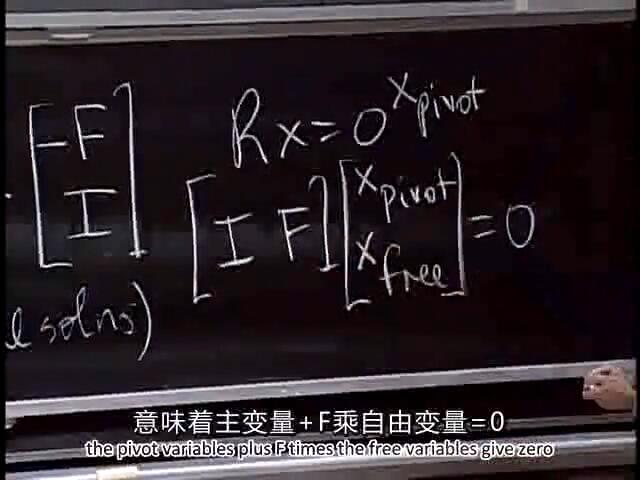 Rx=0 x pivot
[-F
I]
[I F] [x pivot
x free] = 0
solns)
意味着主变量+F乘自由变量=0
the pivot variables plus F times the free variables give zero